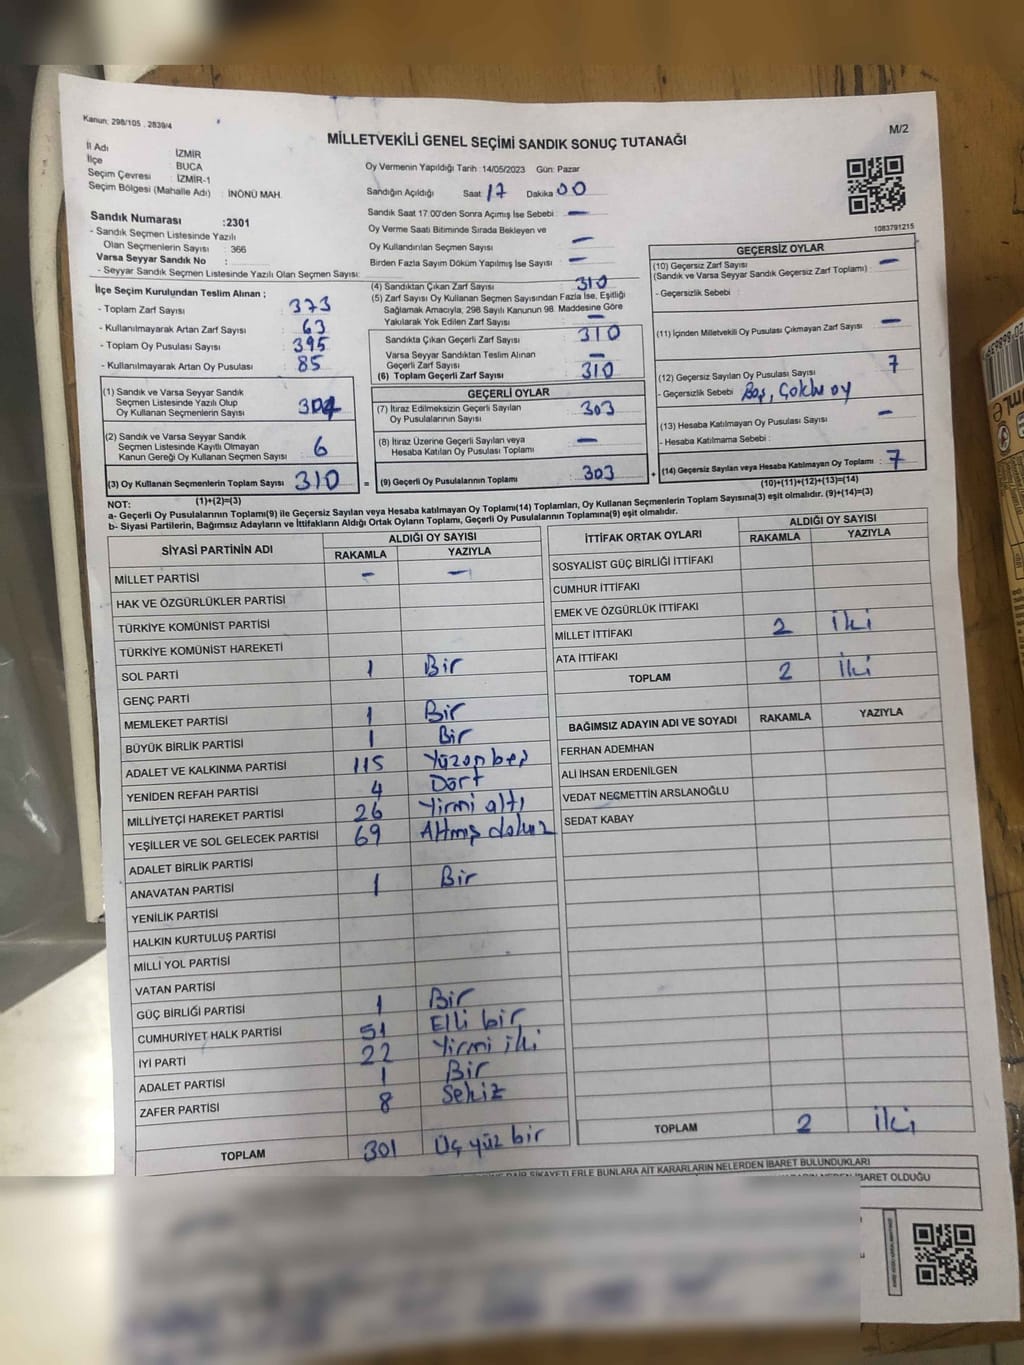 Kanun: 298/105 . 2839/4
MİLLETVEKİLİ GENEL SEÇİMİ SANDIK SONUÇ TUTANAĞI
M/2
İl Adı : İZMİR
İlçe : BUCA
Seçim Çevresi : İZMİR-1
Seçim Bölgesi (Mahalle Adı) : İNÖNÜ MAH.
Oy Vermenin Yapıldığı Tarih :14/05/2023 Gün: Pazar
Sandığın Açıldığı Saat 17 Dakika 00
Sandık Saat 17:00'den Sonra Açımış İse Sebebi : —
Oy Verme Saati Bitiminde Sırada Bekleyen ve
Oy Kullandırılan Seçmen Sayısı —
Birden Fazla Sayım Döküm Yapılmış İse Sayısı : —
1083791215
Sandık Numarası :2301
- Sandık Seçmen Listesinde Yazılı
Olan Seçmenlerin Sayısı : 366
Varsa Seyyar Sandık No :
- Seyyar Sandık Seçmen Listesinde Yazılı Olan Seçmen Sayısı:
İlçe Seçim Kurulundan Teslim Alınan ;
- Toplam Zarf Sayısı : 373
- Kullanılmayarak Artan Zarf Sayısı : 63
- Toplam Oy Pusulası Sayısı : 395
- Kullanılmayarak Artan Oy Pusulası : 85
(1) Sandık ve Varsa Seyyar Sandık
Seçmen Listesinde Yazılı Olup
Oy Kullanan Seçmenlerin Sayısı : 304
(2) Sandık ve Varsa Seyyar Sandık
Seçmen Listesinde Kayıtlı Olmayan
Kanun Gereği Oy Kullanan Seçmen Sayısı : 6
(3) Oy Kullanan Seçmenlerin Toplam Sayısı : 310
(1)+(2)=(3)
(4) Sandıktan Çıkan Zarf Sayısı : 310
(5) Zarf Sayısı Oy Kullanan Seçmen Sayısından Fazla İse, Eşitliği
Sağlamak Amacıyla, 298 Sayılı Kanunun 98. Maddesine Göre
Yakılarak Yok Edilen Zarf Sayısı : —
Sandıkta Çıkan Geçerli Zarf Sayısı : 310
Varsa Seyyar Sandıktan Teslim Alınan
Geçerli Zarf Sayısı : —
(6) Toplam Geçerli Zarf Sayısı : 310
GEÇERLİ OYLAR
(7) İtiraz Edilmeksizin Geçerli Sayılan
Oy Pusulalarının Sayısı : 303
(8) İtiraz Üzerine Geçerli Sayılan veya
Hesaba Katılan Oy Pusulası Toplamı : —
= (9) Geçerli Oy Pusulalarının Toplamı : 303
GEÇERSİZ OYLAR
(10) Geçersiz Zarf Sayısı
(Sandık ve Varsa Seyyar Sandık Geçersiz Zarf Toplamı) : —
- Geçersizlik Sebebi :
(11) İçinden Milletvekili Oy Pusulası Çıkmayan Zarf Sayısı : —
(12) Geçersiz Sayılan Oy Pusulası Sayısı : 7
- Geçersizlik Sebebi : Boş, Çoklu oy
(13) Hesaba Katılmayan Oy Pusulası Sayısı : —
- Hesaba Katılmama Sebebi :
+ (14) Geçersiz Sayılan veya Hesaba Katılmayan Oy Toplamı : 7
(10)+(11)+(12)+(13)=(14)
NOT:
a- Geçerli Oy Pusulalarının Toplamı(9) ile Geçersiz Sayılan veya Hesaba katılmayan Oy Toplamı(14) Toplamları, Oy Kullanan Seçmenlerin Toplam Sayısına(3) eşit olmalıdır. (9)+(14)=(3)
b- Siyasi Partilerin, Bağımsız Adayların ve İttifakların Aldığı Ortak Oyların Toplamı, Geçerli Oy Pusulalarının Toplamına(9) eşit olmalıdır.
SİYASİ PARTİNİN ADI ALDIĞI OY SAYISI
RAKAMLA YAZIYLA
MİLLET PARTİSİ — —
HAK VE ÖZGÜRLÜKLER PARTİSİ
TÜRKİYE KOMÜNİST PARTİSİ
TÜRKİYE KOMÜNİST HAREKETİ
SOL PARTİ 1 Bir
GENÇ PARTİ
MEMLEKET PARTİSİ 1 Bir
BÜYÜK BİRLİK PARTİSİ 1 Bir
ADALET VE KALKINMA PARTİSİ 115 Yüzonbeş
YENİDEN REFAH PARTİSİ 4 Dört
MİLLİYETÇİ HAREKET PARTİSİ 26 Yirmi altı
YEŞİLLER VE SOL GELECEK PARTİSİ 69 Altmış dokuz
ADALET BİRLİK PARTİSİ
ANAVATAN PARTİSİ 1 Bir
YENİLİK PARTİSİ
HALKIN KURTULUŞ PARTİSİ
MİLLİ YOL PARTİSİ
VATAN PARTİSİ
GÜÇ BİRLİĞİ PARTİSİ 1 Bir
CUMHURİYET HALK PARTİSİ 51 Elli bir
İYİ PARTİ 22 Yirmi iki
ADALET PARTİSİ 1 Bir
ZAFER PARTİSİ 8 Sekiz
TOPLAM 301 Üç yüz bir
İTTİFAK ORTAK OYLARI ALDIĞI OY SAYISI
RAKAMLA YAZIYLA
SOSYALİST GÜÇ BİRLİĞİ İTTİFAKI
CUMHUR İTTİFAKI
EMEK VE ÖZGÜRLÜK İTTİFAKI
MİLLET İTTİFAKI 2 İki
ATA İTTİFAKI
TOPLAM 2 İki
BAĞIMSIZ ADAYIN ADI VE SOYADI RAKAMLA YAZIYLA
FERHAN ADEMHAN
ALİ İHSAN ERDENİLGEN
VEDAT NECMETTİN ARSLANOĞLU
SEDAT KABAY
TOPLAM 2 İki
ŞİKAYETLERLE BUNLARA AİT KARARLARIN NELERDEN İBARET BULUNDUKLARI
İBARET OLDUĞU